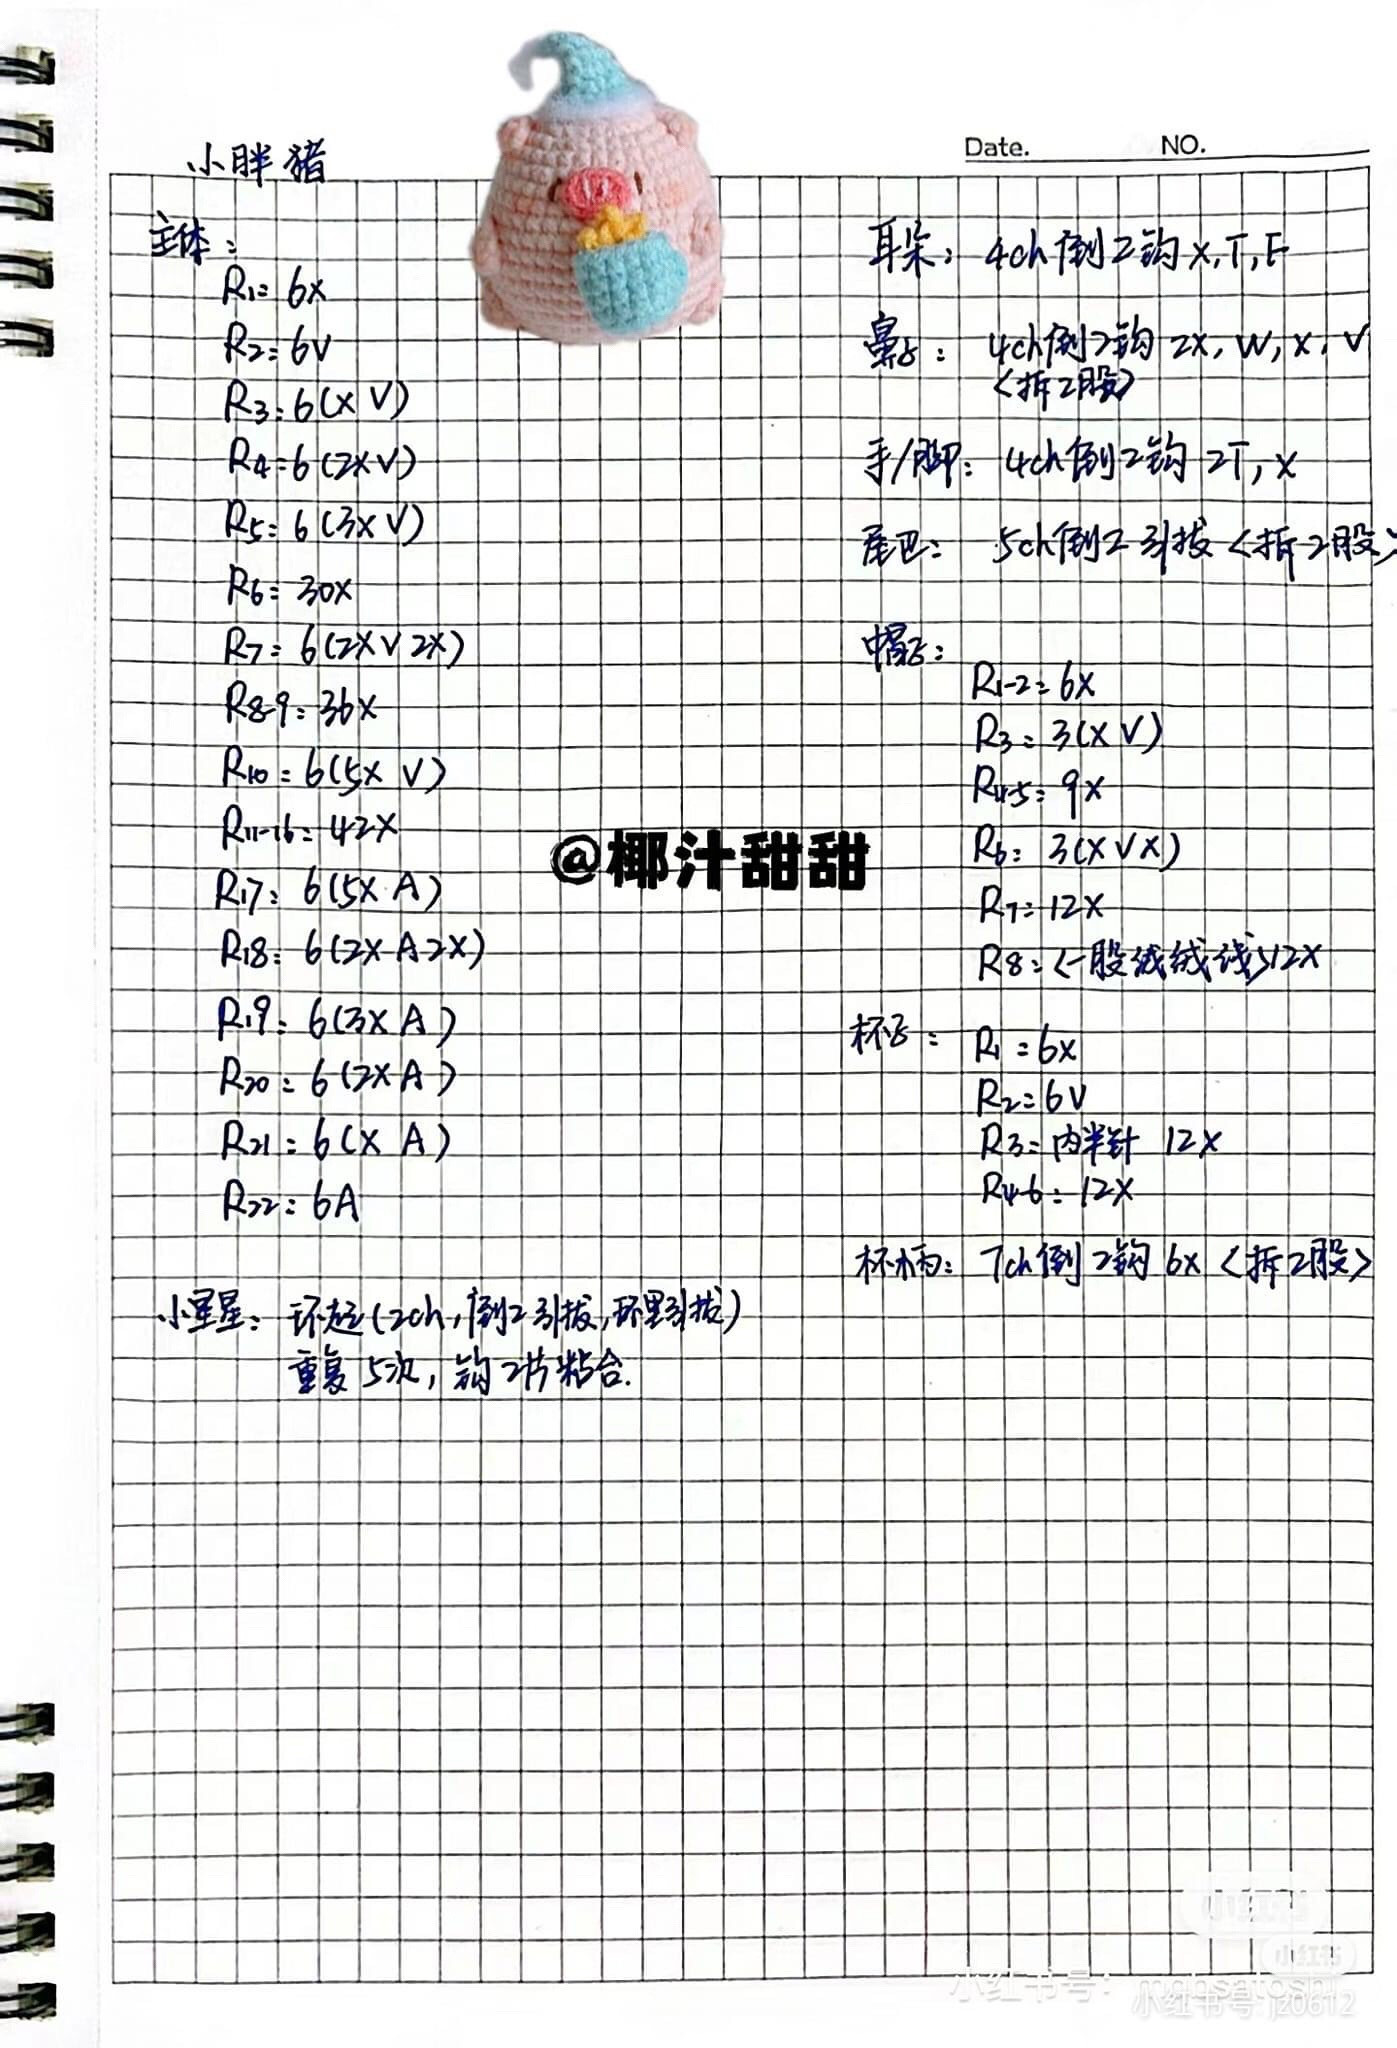 小胖猪
Date. NO.
主体:
R1= 6x
R2= 6V
R3= 6(x V)
R4=6(2xV)
R5= 6(3xV)
R6= 30x
R7= 6(2xV2x)
R8-9= 36x
R10= 6(5x V)
R11-16= 42x
R17= 6(5x A)
R18= 6(2xA2x)
R19= 6(3xA)
R20= 6(2xA)
R21= 6(x A)
R22= 6A
小星星: 环起(2ch,倒2引拔,环里引拔)
重复5次,钩2片粘合.
耳朵: 4ch倒2钩x,T,F
鼻子: 4ch倒2钩 2x, W, x, V
<拆2股>
手/脚: 4ch倒2钩 2T, x
尾巴: 5ch倒2引拔<拆2股>
帽子:
R1-2= 6x
R3= 3(x V)
R4-5= 9x
R6= 3(xVx)
R7= 12x
R8=<一股绒绒线>12x
杯子: R1=6x
R2=6V
R3=内半针 12x
R4-6= 12x
杯柄: 7ch倒2钩 6x<拆2股>
@椰汁甜甜
小红书
小红书
小红书号:
小红书号 jz0612